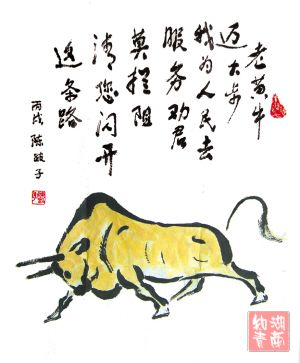 老黄牛
迈大步
我为人民去
服务劝君
莫拦阻
请您闪开
这条路
丙戌 陈
湖南
知青